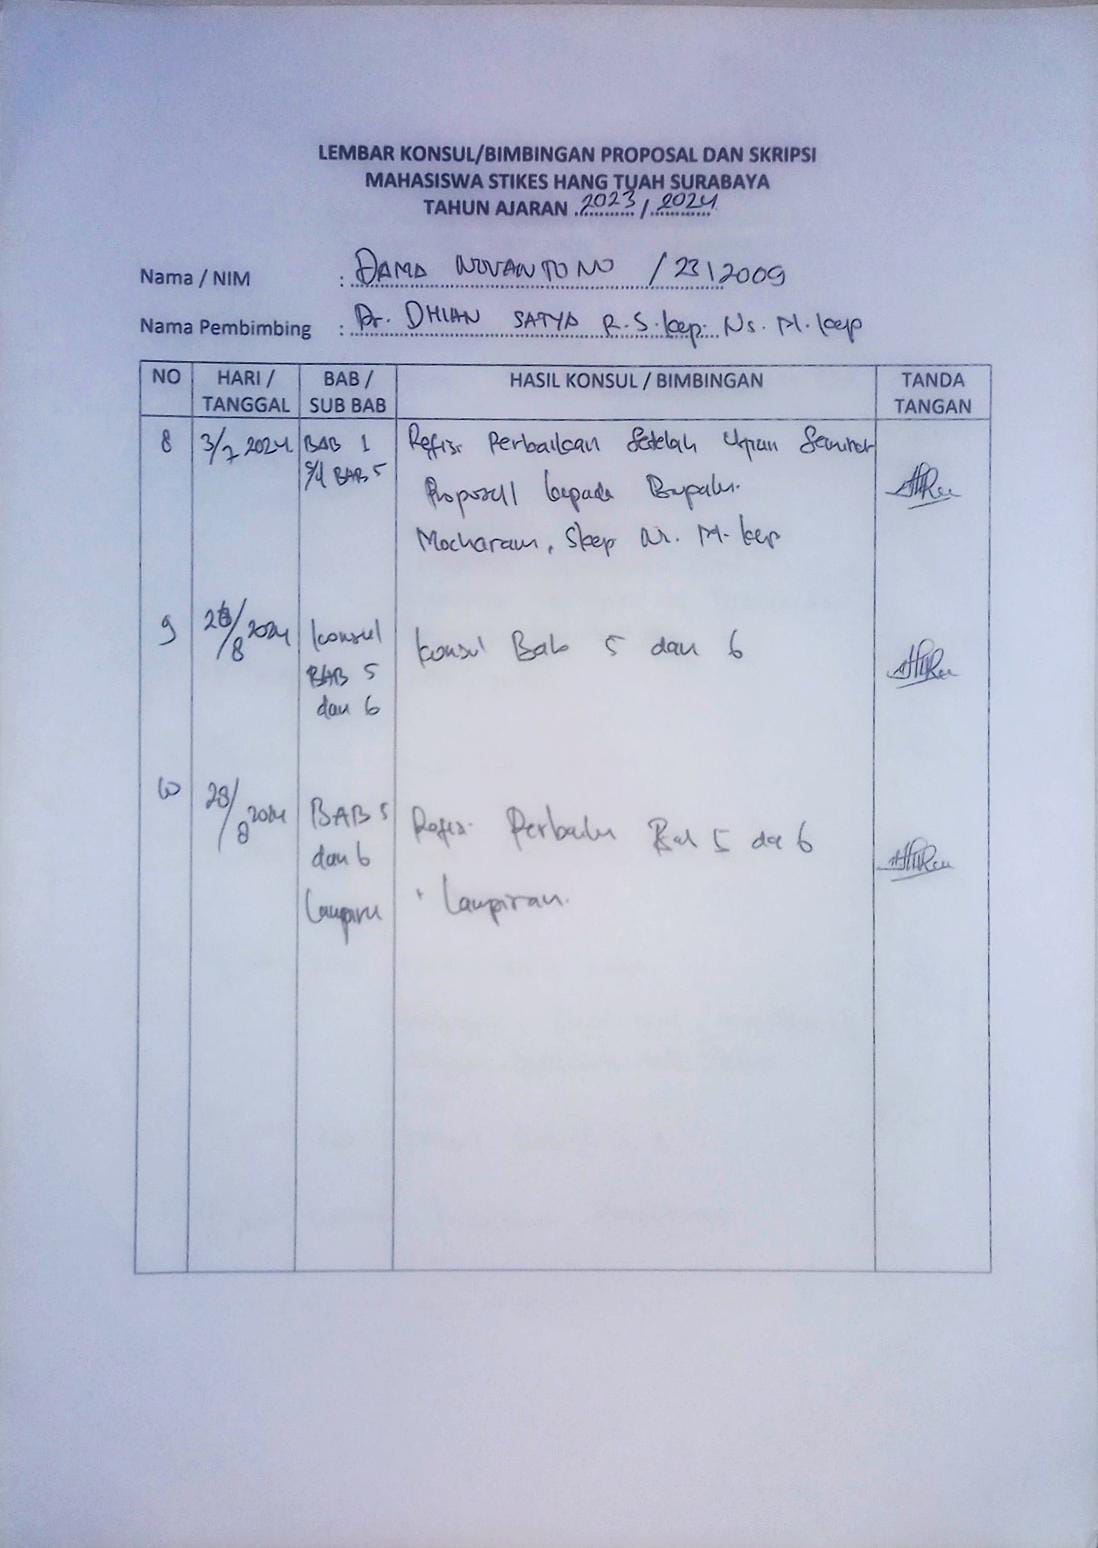 LEMBAR KONSUL/BIMBINGAN PROPOSAL DAN SKRIPSI
MAHASISWA STIKES HANG TUAH SURABAYA
TAHUN AJARAN 2023 / 2024
Nama / NIM : DAMA NOVANTONO / 2312009
Nama Pembimbing : Dr. DHIAN SATYA R. S.kep. Ns. M.kep
NO HARI / TANGGAL BAB / SUB BAB HASIL KONSUL / BIMBINGAN TANDA TANGAN
8 3/7 2024 BAB 1 Refisi Perbaikan Setelah Ujian Seminar
s/d BAB 5 Proposal kepada
S.kep Ns. M.kep
9 /8 2024 konsul konsul Bab 5 dan 6
BAB 5
dan 6
10 28/8 2024 BAB 5 Refisi Bab 5 da 6
dan 6
Lampiran + Lampiran.